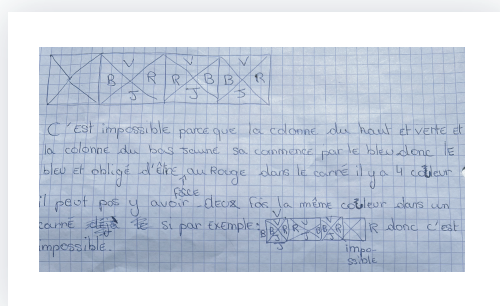 V V V
B R R B B R
J J J
C'est impossible parce que la colonne du haut et verte et
la colonne du bas jaune sa commence par le bleu donc le
bleu et obligé d'être au Rouge dans le carré il y a 4 couleur
FACE
il peut pas y avoir deux fois la même couleur dans un
carré si par exemple: B R R B B R R donc c'est
impossible. impo-
ssible